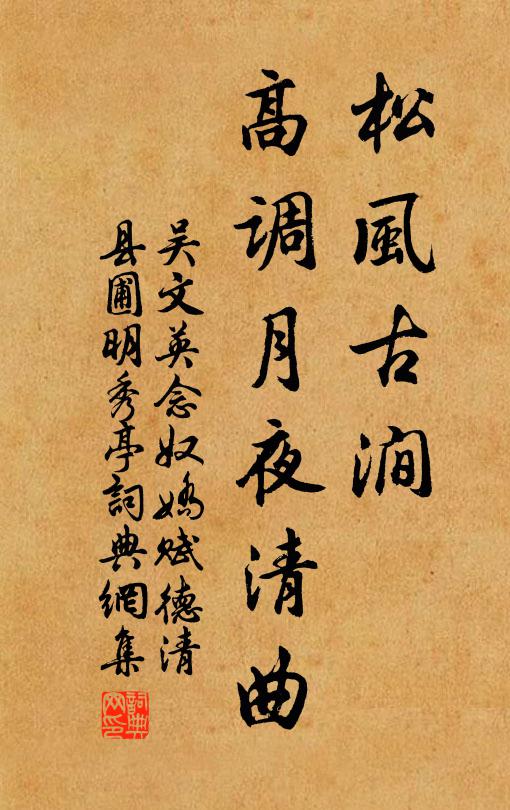 松風古澗
高調月夜清曲
吴文英念奴嬌賦德清
县圃明秀亭詞典網集
詞典网印